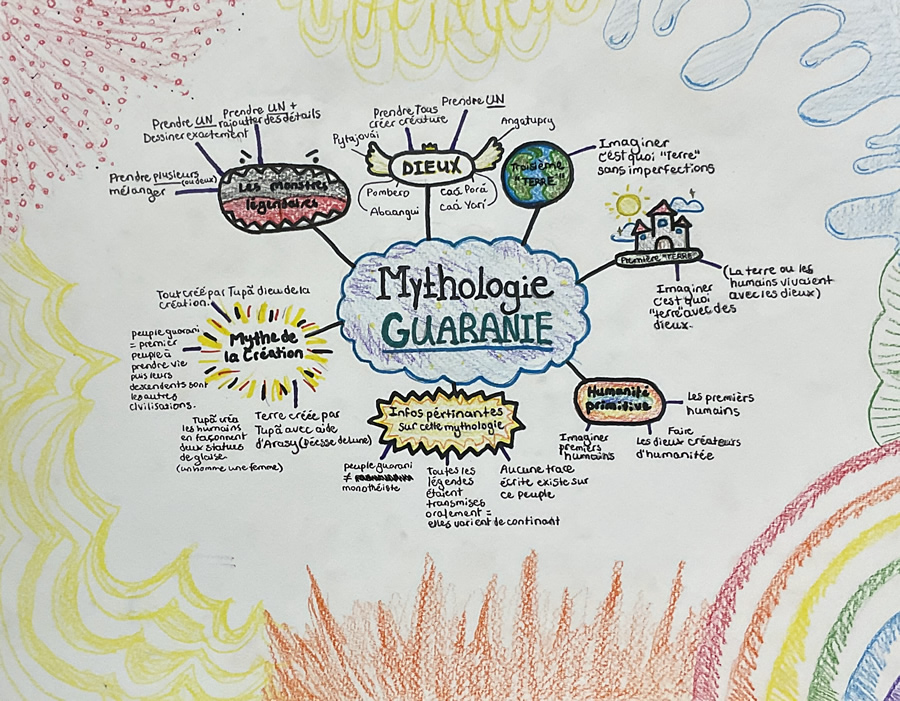 Mythologie
GUARANIE
Les monstres
légendaires
Prendre plusieurs
(ou deux)
mélanger
Prendre UN
Dessiner exactement
Prendre UN +
rajoutter des détails
DIEUX
Pytajovái
Prendre Tous
créer créature
Prendre UN
Angatupry
Pombero
Abaangui
Caá Porá
caá Yarí
Troisième
"TERRE"
Imaginer
c'est quoi "Terre"
sans imperfections
Première "TERRE"
Imaginer
c'est quoi
"terre" avec des
dieux.
(La terre ou les
humains vivaient
avec les dieux)
Humanité
primitive
Les premiers
humains
Faire
les dieux créateurs
d'humanitée
Imaginer
premiers
humains
Infos pértinantes
sur cette mythologie
peuple guarani
≠
monothéiste
Toutes les
légendes
étaient
transmises
oralement =
elles varient de continant
Aucune trace
écrite existe sur
ce peuple
Mythe de
la Création
Tout créé par Tupã dieu de la
création.
peuple guarani
= premier
peuple à
prendre vie
puis leurs
descendents sont
les autres
civilisations.
Tupã créa
les humains
en façonnent
deux statues
de glaise
(un homme une femme)
Terre créée par
Tupã avec aide
d'Arasy (déesse de lune)